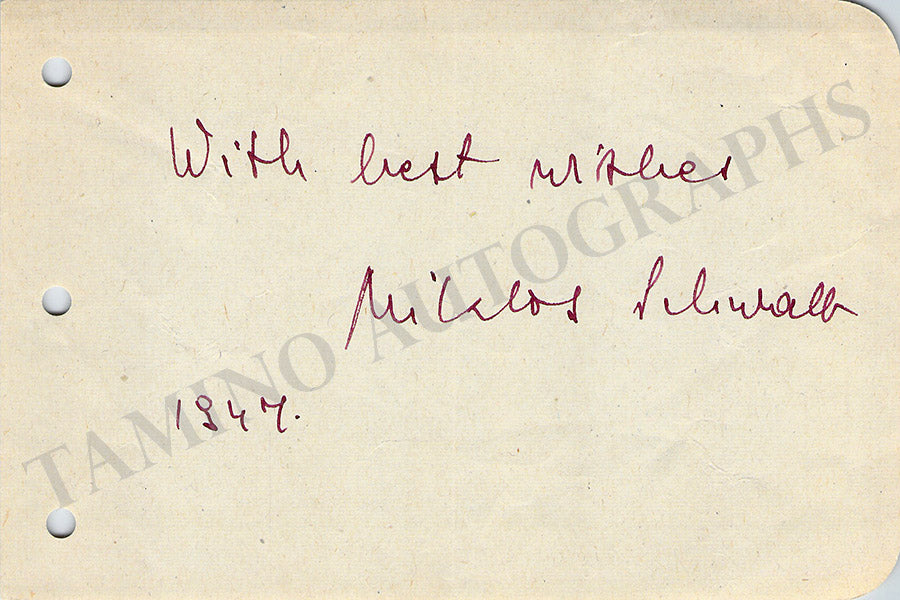 With best wishes
Miklos Schwalb
1947.
TAMINO AUTOGRAPHS